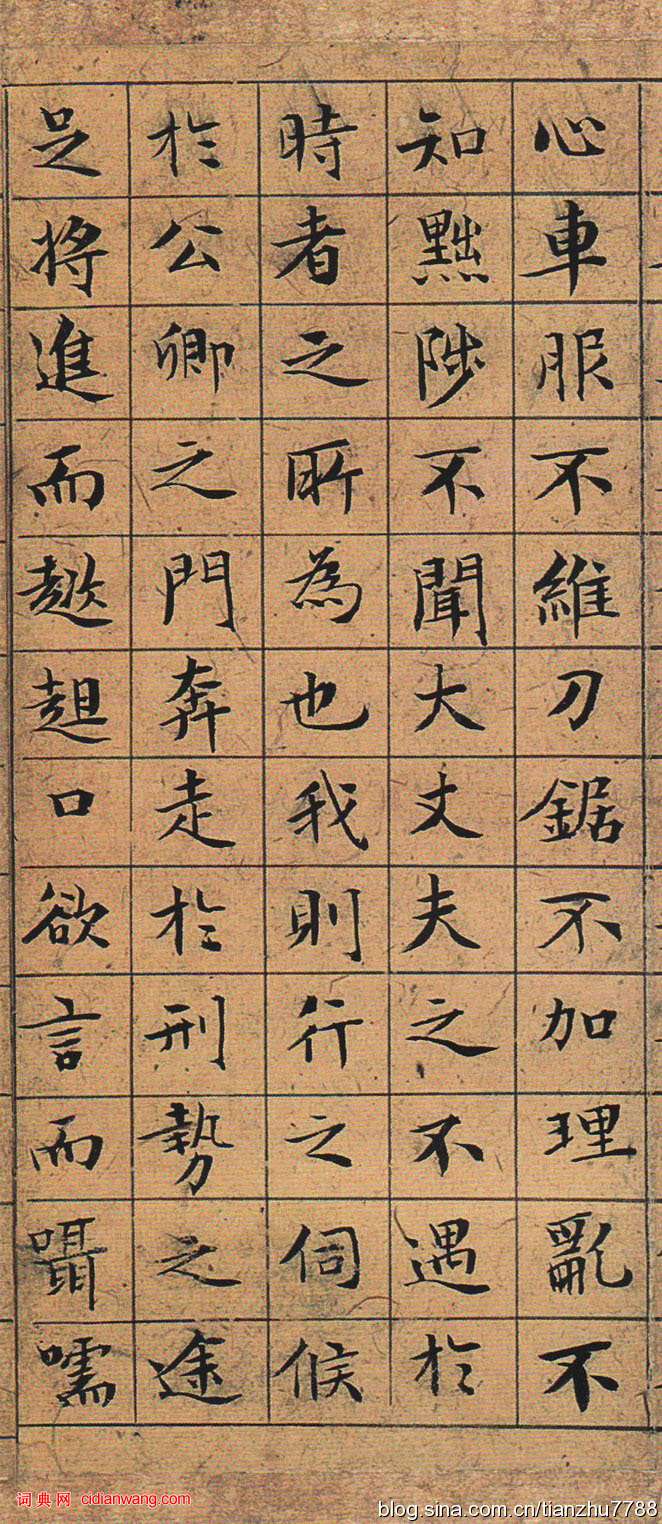 心車服不維刀鋸不加理亂不
知黜陟不聞大丈夫之不遇於
時者之所為也我則行之伺候
於公卿之門奔走於刑勢之途
足將進而趑趄口欲言而囁嚅
词典网 cidianwang.com
blog.sina.com.cn/tianzhu7788